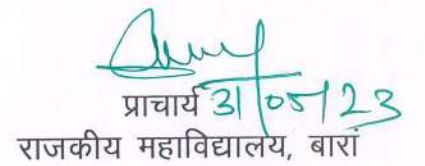 प्राचार्य 31/05/23
राजकीय महाविद्यालय, बारां